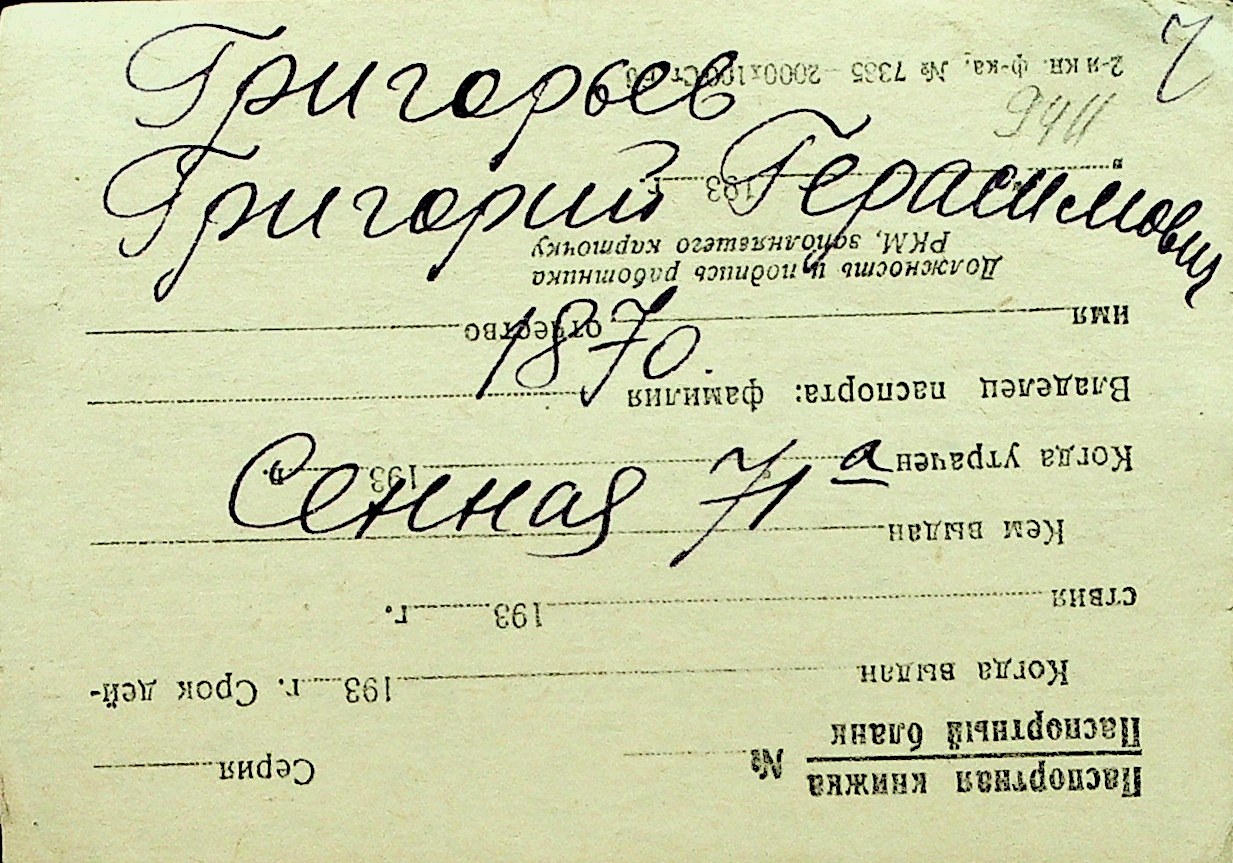 Григорьев
Григорий Герасимович
1870.
Сенная 71а
7
944
Паспортная книжка
Паспортный бланк
№ Серия
Когда выдан 193 г. Срок дей-
ствия 193 г.
Кем выдан
Когда утрачен 193 г.
Владелец паспорта: фамилия
имя отчество
Должность и подпись работника
РКМ, заполнявшего карточку
" 193 г.
2-я кн. ф-ка, № 7385—2000х100